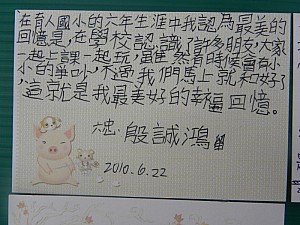 在育人國小的六年生涯中我認為最美的
回憶是,在學校認識了許多朋友,大家
一起上課一起玩,雖然有時候會有小
小的爭吵,不過我們馬上就和好了
,這就是我最美好的幸福回憶。
六忠. 殷誠鴻 留
2010.6.22